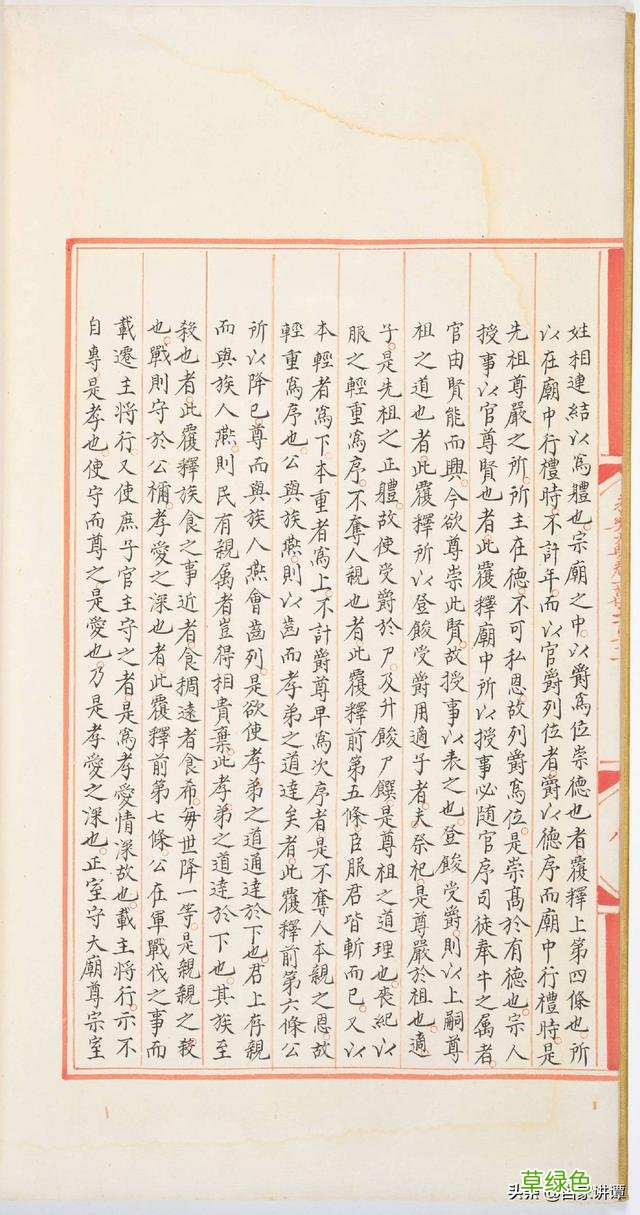 姓相連結以為體也宗廟之中以爵為位崇德也者覆釋上第四條也所
以在廟中行禮時不計年而以官爵列位者爵以德序而廟中行禮時是
先祖尊嚴之所所主在德不可私恩故列爵為位是崇髙於有德也宗人
授事以官尊賢也者此覆釋廟中所以授事必随官序司徒奉牛之属者
官由賢能而興今欲尊崇此賢故授事以表之也登餕受爵則以上嗣尊
祖之道也者此覆釋所以登餕受爵用適子者夫祭祀是尊嚴於祖也適
子是先祖之正體故使受爵於尸及升餕尸饌是尊祖之道理也喪紀以
服之輕重為序不奪人親也者此覆釋前第五條臣服君皆斬而已又以
本輕者為下本重者為上不計爵尊早為次序者是不奪人本親之恩故
輕重為序也公與族燕則以齒而孝弟之道達矣者此覆釋前第六條公
所以降已尊而與族人燕會齒列是欲使孝弟之道通達於下也君上存親
而與族人燕則民有親属者豈得相貴棄此孝弟之道達於下也其族至
殺也者此覆釋族食之事近者食稠遠者食希每世降一等是親親之殺
也戰則守於公禰孝愛之深也者此覆釋前第七條公在軍戰伐之事而
載遷主將行又使庶子官主守之者是為孝愛情深故也載主將行示不
自專是孝也使守而尊之是愛也乃是孝愛之深也正室守大廟尊宗室
草绿色
头条 @百家讲谭